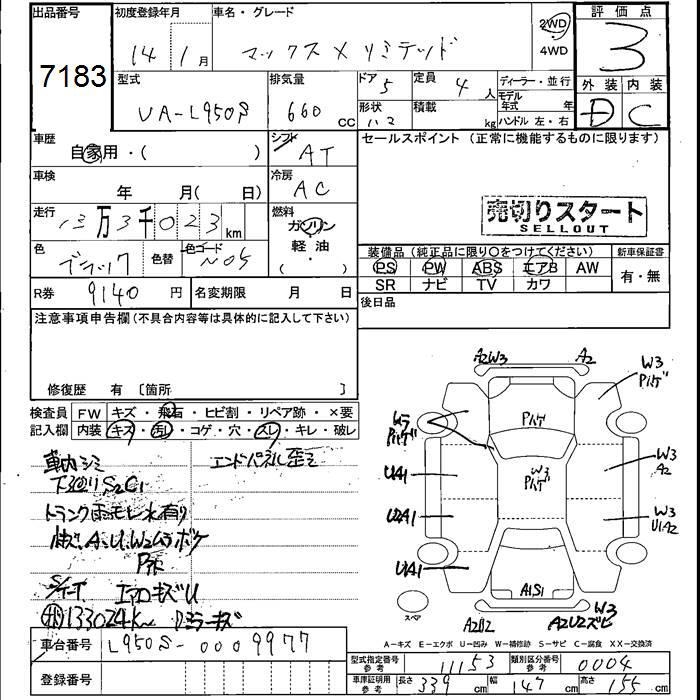 出品番号
7183
初度登録年月
14年1月
車名・グレード
マックス X リミテッド
2WD
4WD
評価点
3
外装 内装
D C
型式
UA-L950S
排気量
660 cc
ドア 5
定員 4人
形状
積載 kg
ディーラー・並行
モデル年式 年
ハンドル 左・右
車歴
自家用・( )
シフト
AT
セールスポイント(正常に機能するものに限ります)
車検
年 月( 日)
冷房
AC
売切りスタート
SELLOUT
走行
13万3千023km
燃料
ガソリン
軽油
( ・ )
色
ブラック
色替
色コード
N05
装備品(純正品に限り〇をつけてください)
新車保証書
PS PW ABS エアB AW
SR ナビ TV カワ
有・無
R券
9140円
名変期限 月 日
後日品
注意事項申告欄(不具合内容等は具体的に記入して下さい)
修復歴 有 〔箇所 〕
検査員記入欄
FW キズ・飛石・ヒビ割・リペア跡・×要
内装 キズ・汚し・コゲ・穴・スレ・キレ・破レ
車内シミ
エンドパネル歪ミ
下廻りS2C1
トランク雨モレ水有り
A.U.W2ムラボケ
エアロキズU
133024km
ミラーキズ
A2W3
A2
W3
Pハゲ
Pハゲ
W3
Pハゲ
W3
A2
U1A1
W3
U1A2
U2A1
U1A1
A1S1
スペア
A2U2
W3
A2U2ズビ
A-キズ E-エクボ U-凹み W-補修跡 S-サビ C-腐食 XX-交換済
車台番号
L950S-0009977
登録番号
型式指定番号
参考
11153
類別区分番号
参考
0004
車庫証明用
参考
長さ 339cm 幅 147cm 高さ 155cm